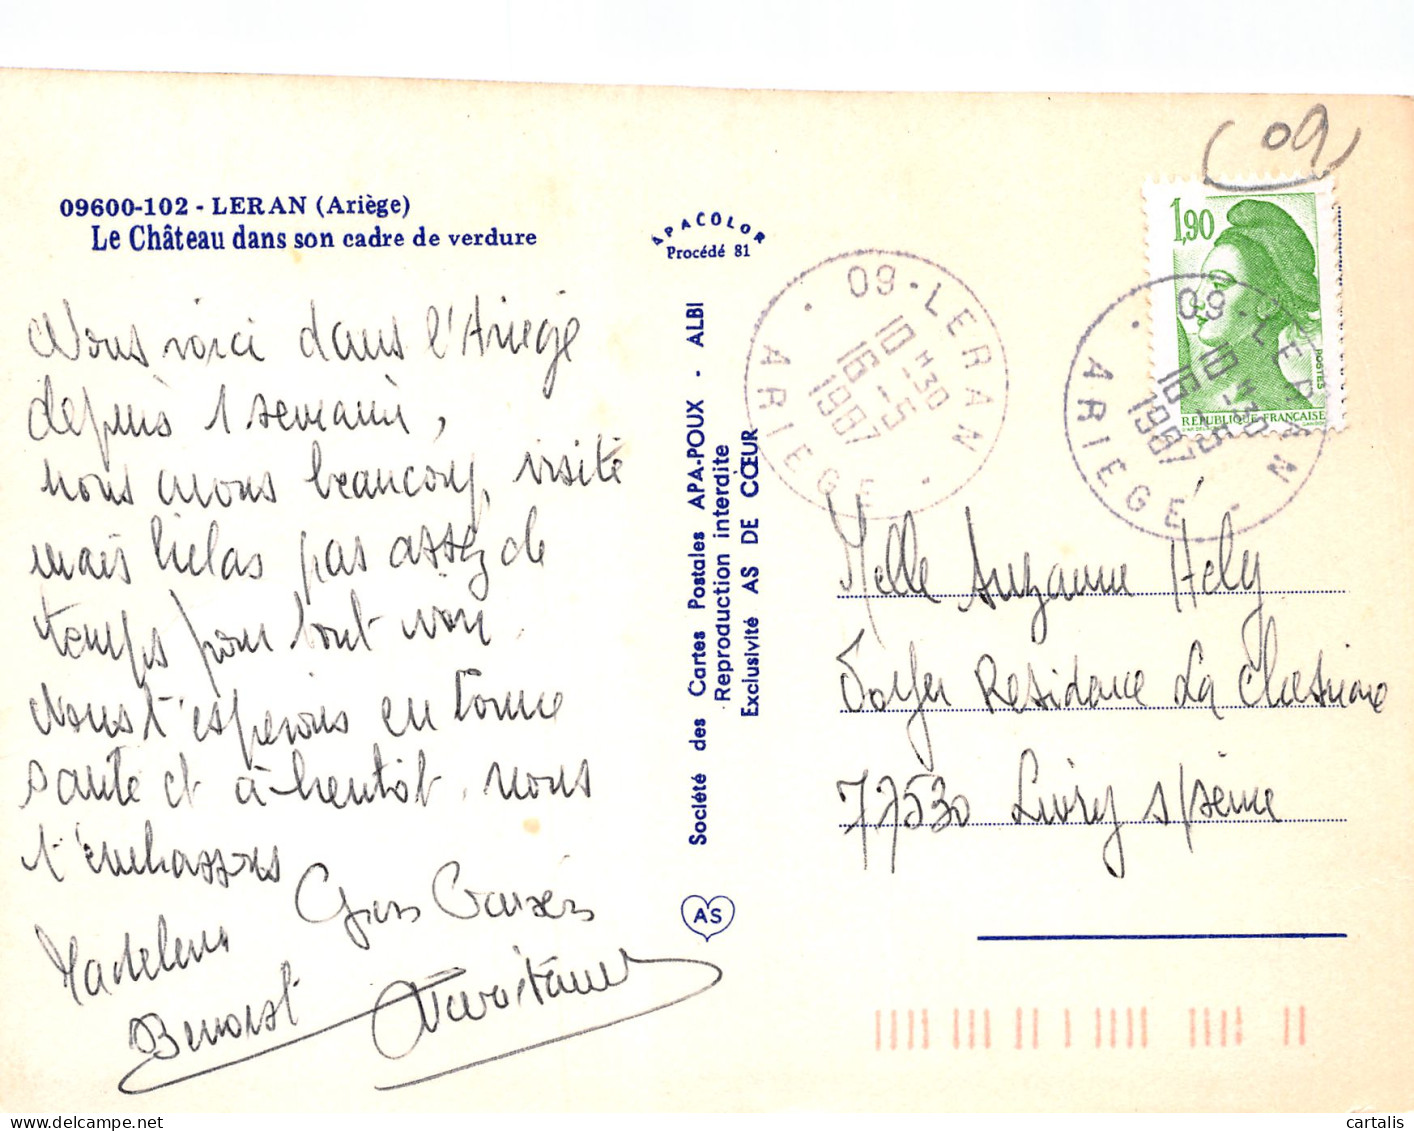 (09)
09600-102 - LERAN (Ariège)
Le Château dans son cadre de verdure
APACOLOR
Procédé 81
Nous voici dans l'Ariege
depuis 1 semaine,
nous avons beaucoup visité
mais helas pas assez de
temps pour tout voir.
Nous t'esperons en bonne
santé et à bientôt. nous
t'embrassons
Gros Baisers
Madeleine
Benoist
Société des Cartes Postales APA-POUX - ALBI
Reproduction interdite
Exclusivité AS DE CŒUR
AS
1,90
POSTES
REPUBLIQUE FRANCAISE
09 - LERAN
10 H 30
16 - 5
1987
ARIEGE
09 - LERAN
10 H 30
16 - 5
1987
ARIEGE
Melle Suzanne Hely
Foyer Residence La Chesnaie
77530 Livry s/seine
cartalis